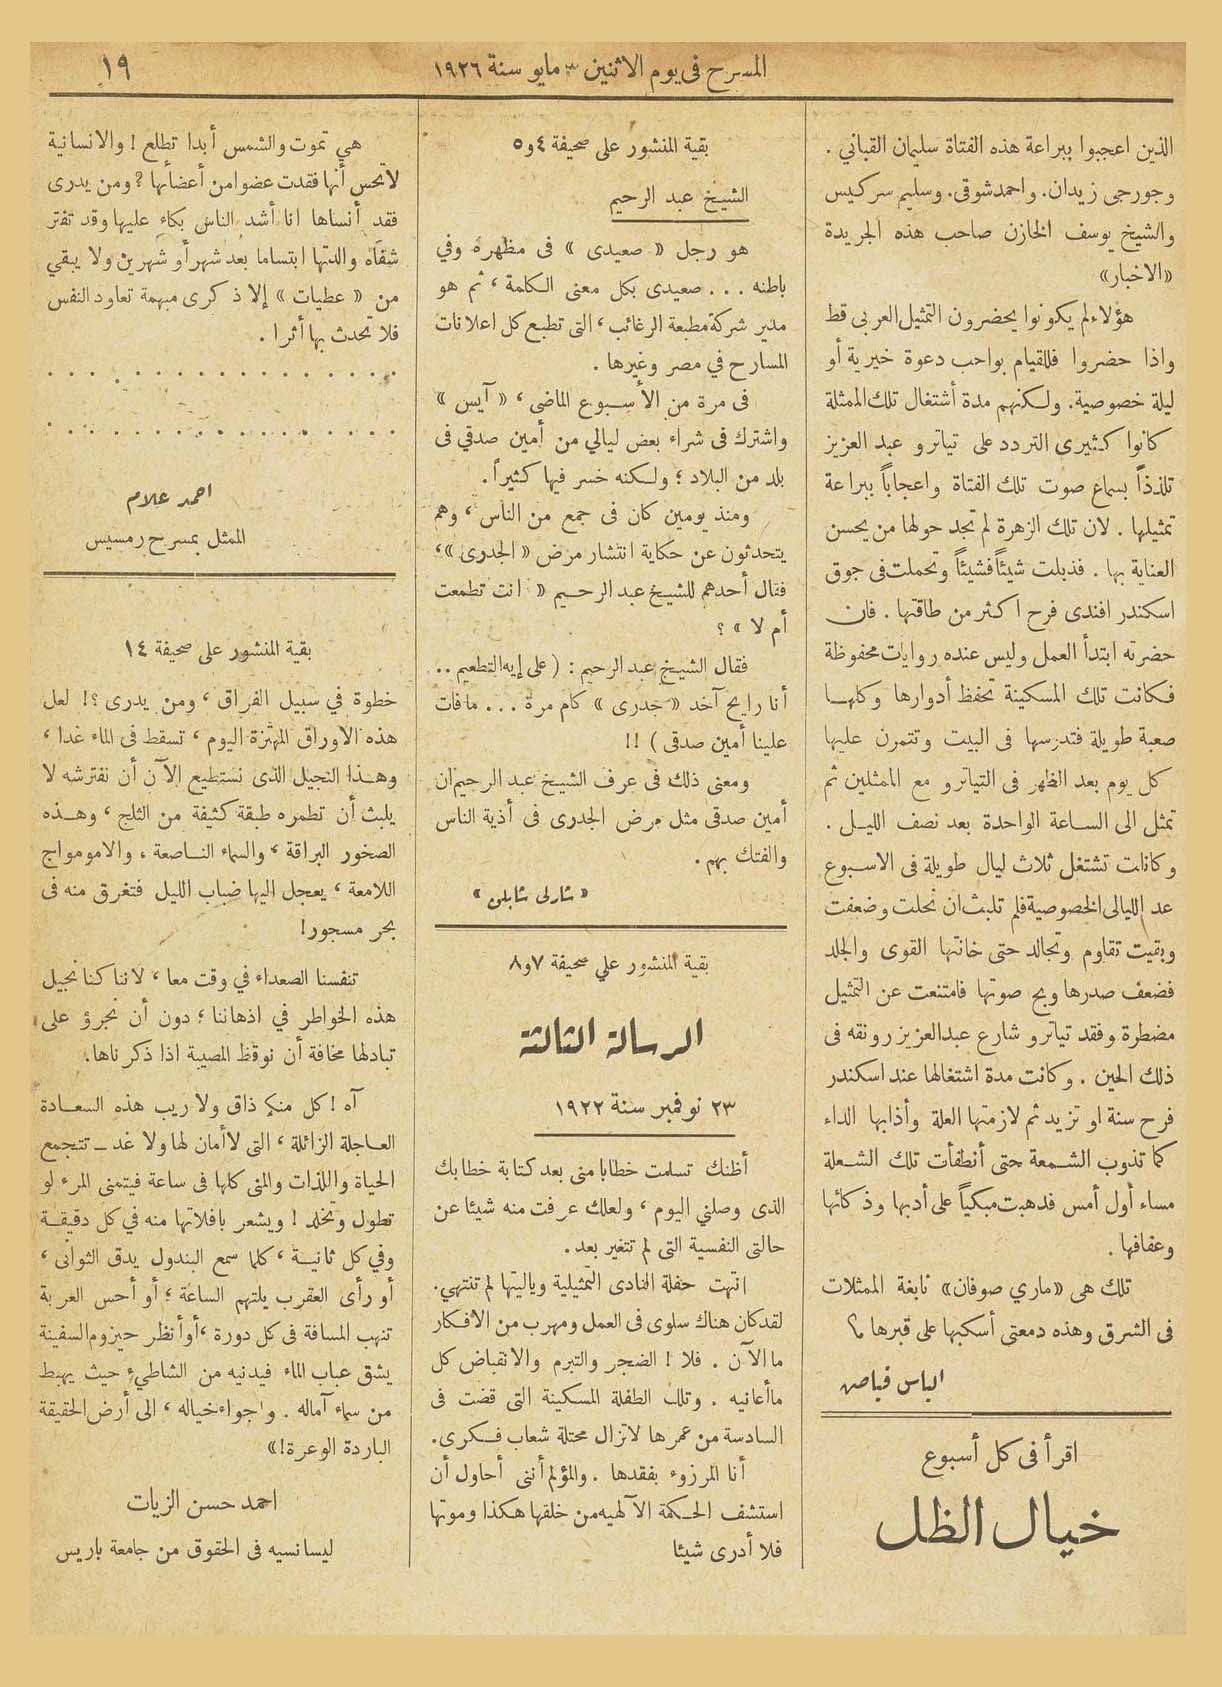 المسرح فى يوم الاثنين ٣ مايو سنة ١٩٢٦
١٩
الذين اعجبوا ببراعة هذه الفتاة سليمان القباني .
وجورجى زيدان . واحمد شوقى . وسليم سركيس
والشيخ يوسف الخازن صاحب هذه الجريدة
«الاخبار»
هؤلاء لم يكونوا يحضرون التمثيل العربى قط
واذا حضروا فللقيام بواحب دعوة خيرية أو
ليلة خصوصية. ولكنهم مدة أشتغال تلك الممثلة
كانوا كثيرى التردد على تياترو عبد العزيز
تلذذاً بسماع صوت تلك الفتاة واعجاباً ببراعة
تمثيلها . لان تلك الزهرة لم تجد حولها من يحسن
العناية بها . فذبلت شيئاً فشيئاً وتحملت فى جوق
اسكندر افندى فرح اكثر من طاقتها . فان
حضرته ابتدأ العمل وليس عنده روايات محفوظة
فكانت تلك المسكينة تحفظ أدوارها وكلهـا
صعبة طويلة فتدرسها فى البيت وتتمرن عليها
كل يوم بعد الظهر فى التياترو مع الممثلين ثم
تمثل الى الساعة الواحدة بعد نصف الليل .
وكانت تشتغل ثلاث ليال طويلة فى الاسبوع
عد الليالى الخصوصية فلم تلبث ان نحلت وضعفت
وبقيت تقاوم وتجالد حتى خانتها القوى والجلد
فضعف صدرها وبح صوتها فامتنعت عن التمثيل
مضطرة وفقد تياترو شارع عبدالعزيز رونقه فى
ذلك الحين . وكانت مدة اشتغالها عند اسكندر
فرح سنة او تزيد ثم لازمتها العلة وأذابها الداء
كما تذوب الشمعة حتى أنطفأت تلك الشعلة
مساء أول أمس فذهبت مبكياً على أدبها وذكائها
وعفافها .
تلك هى «ماري صوفان» نابغة الممثلات
فى الشرق وهذه دمعتى أسكبها على قبرها
الياس فياض
اقرأ فى كل أسبوع
خيال الظل
بقية المنشور على صحيفة ٤ و٥
الشيخ عبد الرحيم
هو رجل « صعيدى » فى مظهره وفي
باطنه . . . صعيدى بكل معنى الكلمة ، ثم هو
مدير شركة مطبعة الرغائب ، التى تطبع كل اعلانات
المسارح في مصر وغيرها .
فى مرة من الأسبوع الماضى ، « آيس »
واشترك فى شراء بعض ليالي من أمين صدقي فى
بلد من البلاد ؛ ولكنه خسر فيها كثيراً .
ومنذ يومين كان فى جمع من الناس ، وهم
يتحدثون عن حكاية انتشار مرض « الجدرى » ،
فقال أحدهم للشيخ عبد الرحيم « انت تطعمت
أم لا » ؟
فقال الشيخ عبد الرحيم : ( على إيه التطعيم . .
أنا رايح آخد « جدرى » كام مرة . . . مافات
علينا أمين صدقى ) !!
ومعنى ذلك فى عرف الشيخ عبد الرحيم ان
أمين صدقى مثل مرض الجدرى فى أذية الناس
والفتك بهم .
« شارلى شابلن »
بقية المنشور علي صحيفة ٧و٨
الرسالة الثالثة
٢٣ نوفمبر سنة ١٩٢٢
أظنك تسلمت خطابا منى بعد كتابة خطابك
الذى وصلني اليوم ، ولعلك عرفت منه شيئا عن
حالتى النفسية التى لم تتغير بعد .
انتهت حفلة النادى التمثيلية وياليتها لم تنتهي.
لقد كان هناك سلوى فى العمل ومهرب من الافكار
ما الآن . فلا ! الضجر والتبرم والانقباض كل
ما أعانيه . وتلك الطفلة المسكينة التى قضت فى
السادسة من عمرها لا تزال محتلة شعاب فكرى.
أنا المرزوء بفقدها . والمؤلم أننى أحاول أن
استشف الحكمة الآلهيه من خلقها هكذا وموتها
فلا أدرى شيئا
هي تموت والشمس أبدا تطلع ! والانسانية
لا تحس أنها فقدت عضوا من أعضائها ؟ ومن يدرى
فقد أنساها انا أشد الناس بكاء عليها وقد تفتر
شفاه والدتها ابتساما بعد شهر أو شهرين ولا يبقي
من « عطيات » إلا ذكرى مبهمة تعاود النفس
فلا تحدث بها أثرا .
. . . . . . . . . . . . .
. . . . . . . . . . . . .
احمد علام
الممثل بمسرح رمسيس
بقية المنشور على صحيفة ١٤
خطوة في سبيل الفراق ، ومن يدرى ؟! لعل
هذه الاوراق المهتزة اليوم ، تسقط فى الماء غدا ،
وهذا النجيل الذى نستطيع الآن أن نفترشه لا
يلبث أن تطمره طبقة كثيفة من الثلج ، وهذه
الصخور البراقة ، والسماء الناصعة ، والامومواج
اللامعة ، يعجل اليها ضباب الليل فتغرق منه فى
بحر مسجور !
تنفسنا الصعداء في وقت معا ، لاننا كنا نجيل
هذه الخواطر في اذهاننا ؛ دون أن نجرؤ على
تبادلها مخافة أن نوقظ المصيبة اذا ذكرناها .
آه ! كل منكم ذاق ولا ريب هذه السعادة
العاجلة الزائلة ، التى لا أمان لها ولا غد ــ تتجمع
الحياة واللذات والمنى كلها فى ساعة فيتمنى المرء لو
تطول وتخلد ! ويشعر بافلاتها منه في كل دقيقة
وفي كل ثانية ، كلما سمع البندول يدق الثوانى ،
أو رأى العقرب يلتهم الساعة ؛ أو أحس العربة
تنهب المسافة فى كل دورة ، أو أنظر حيزوم السفينة
يشق عباب الماء فيدنيه من الشاطيء حيث يهبط
من سماء آماله . واجواء خياله ، الى أرض الحقيقة
الباردة الوعرة !»
احمد حسن الزيات
ليسانسيه فى الحقوق من جامعة باريس